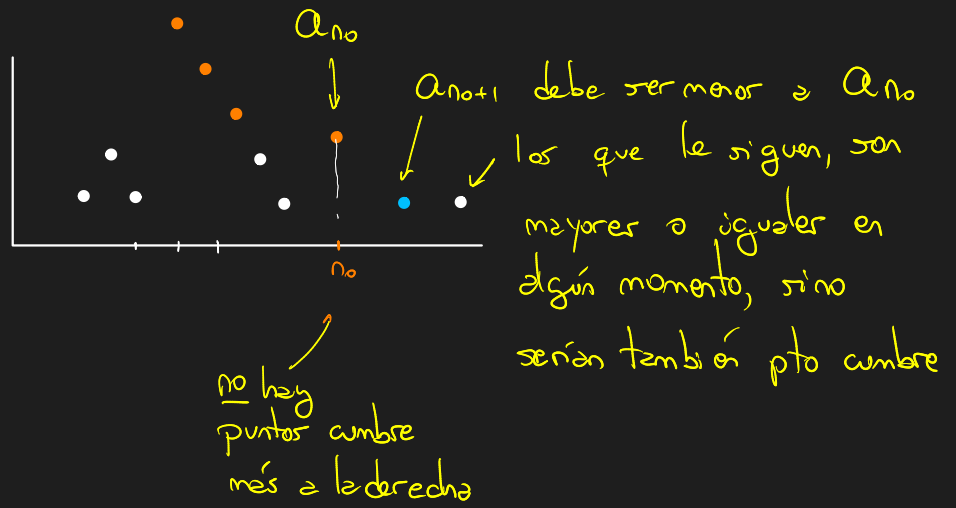 a_{n_0}
a_{n_0+1} debe ser menor a a_{n_0}
los que le siguen, son
mayores o iguales en
algún momento, sino
serían también pto cumbre
n_0
no hay
puntos cumbre
más a la derecha